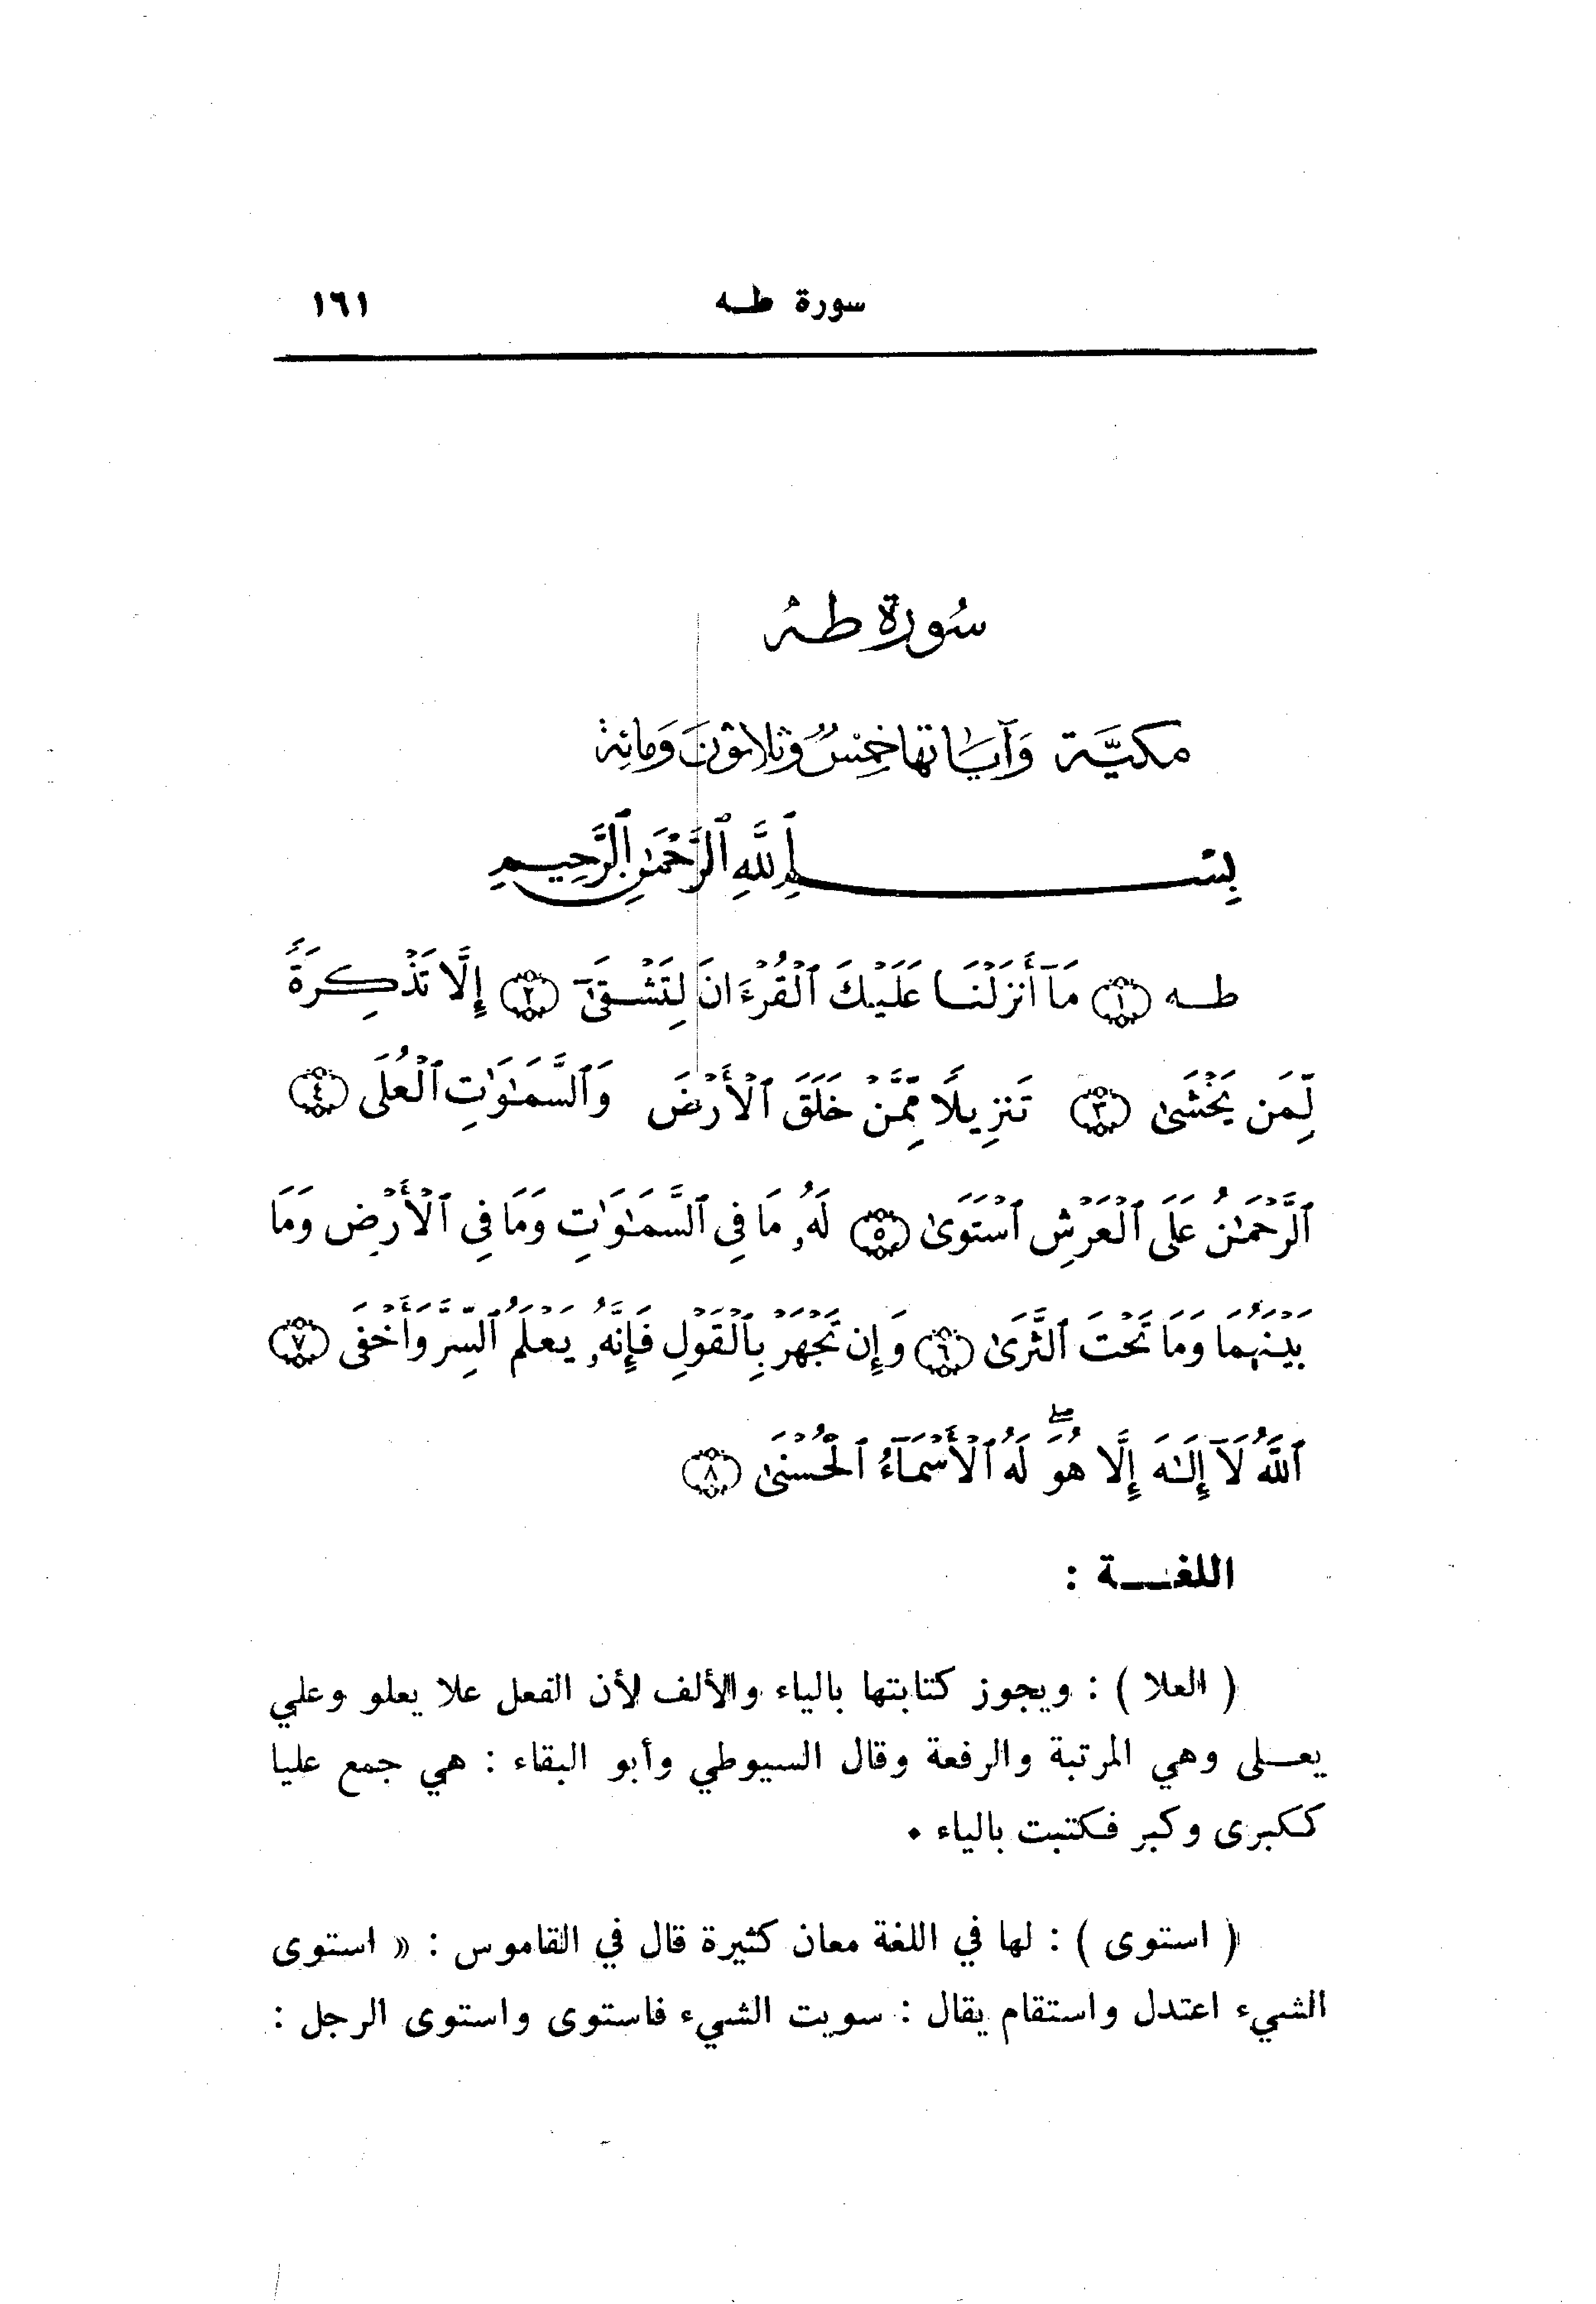 سورة طـه ١٦١
سُورة طـه
مكيَّة وَآيَاتها خمسٌ وَثلاثونَ وَمائة
بِسْمِ ٱللَّهِ ٱلرَّحْمَٰنِ ٱلرَّحِيمِ
طـه ﴿١﴾ مَآ أَنزَلْنَا عَلَيْكَ ٱلْقُرْءَانَ لِتَشْقَىٰٓ ﴿٢﴾ إِلَّا تَذْكِرَةً
لِّمَن يَخْشَىٰ ﴿٣﴾ تَنزِيلًا مِّمَّنْ خَلَقَ ٱلْأَرْضَ وَٱلسَّمَٰوَٰتِ ٱلْعُلَى ﴿٤﴾
ٱلرَّحْمَٰنُ عَلَى ٱلْعَرْشِ ٱسْتَوَىٰ ﴿٥﴾ لَهُۥ مَا فِى ٱلسَّمَٰوَٰتِ وَمَا فِى ٱلْأَرْضِ وَمَا
بَيْنَهُمَا وَمَا تَحْتَ ٱلثَّرَىٰ ﴿٦﴾ وَإِن تَجْهَرْ بِٱلْقَوْلِ فَإِنَّهُۥ يَعْلَمُ ٱلسِّرَّ وَأَخْفَى ﴿٧﴾
ٱللَّهُ لَآ إِلَٰهَ إِلَّا هُوَۖ لَهُ ٱلْأَسْمَآءُ ٱلْحُسْنَىٰ ﴿٨﴾
اللغـــة :
( العلا ) : ويجوز كتابتها بالياء والألف لأن الفعل علا يعلو وعلي
يعـلى وهي المرتبة والرفعة وقال السيوطي وأبو البقاء : هي جمع عليا
ككبرى وكبر فكتبت بالياء ٠
( استوى ) : لها في اللغة معان كثيرة قال في القاموس : « استوى
الشيء اعتدل واستقام يقال : سويت الشيء فاستوى واستوى الرجل :